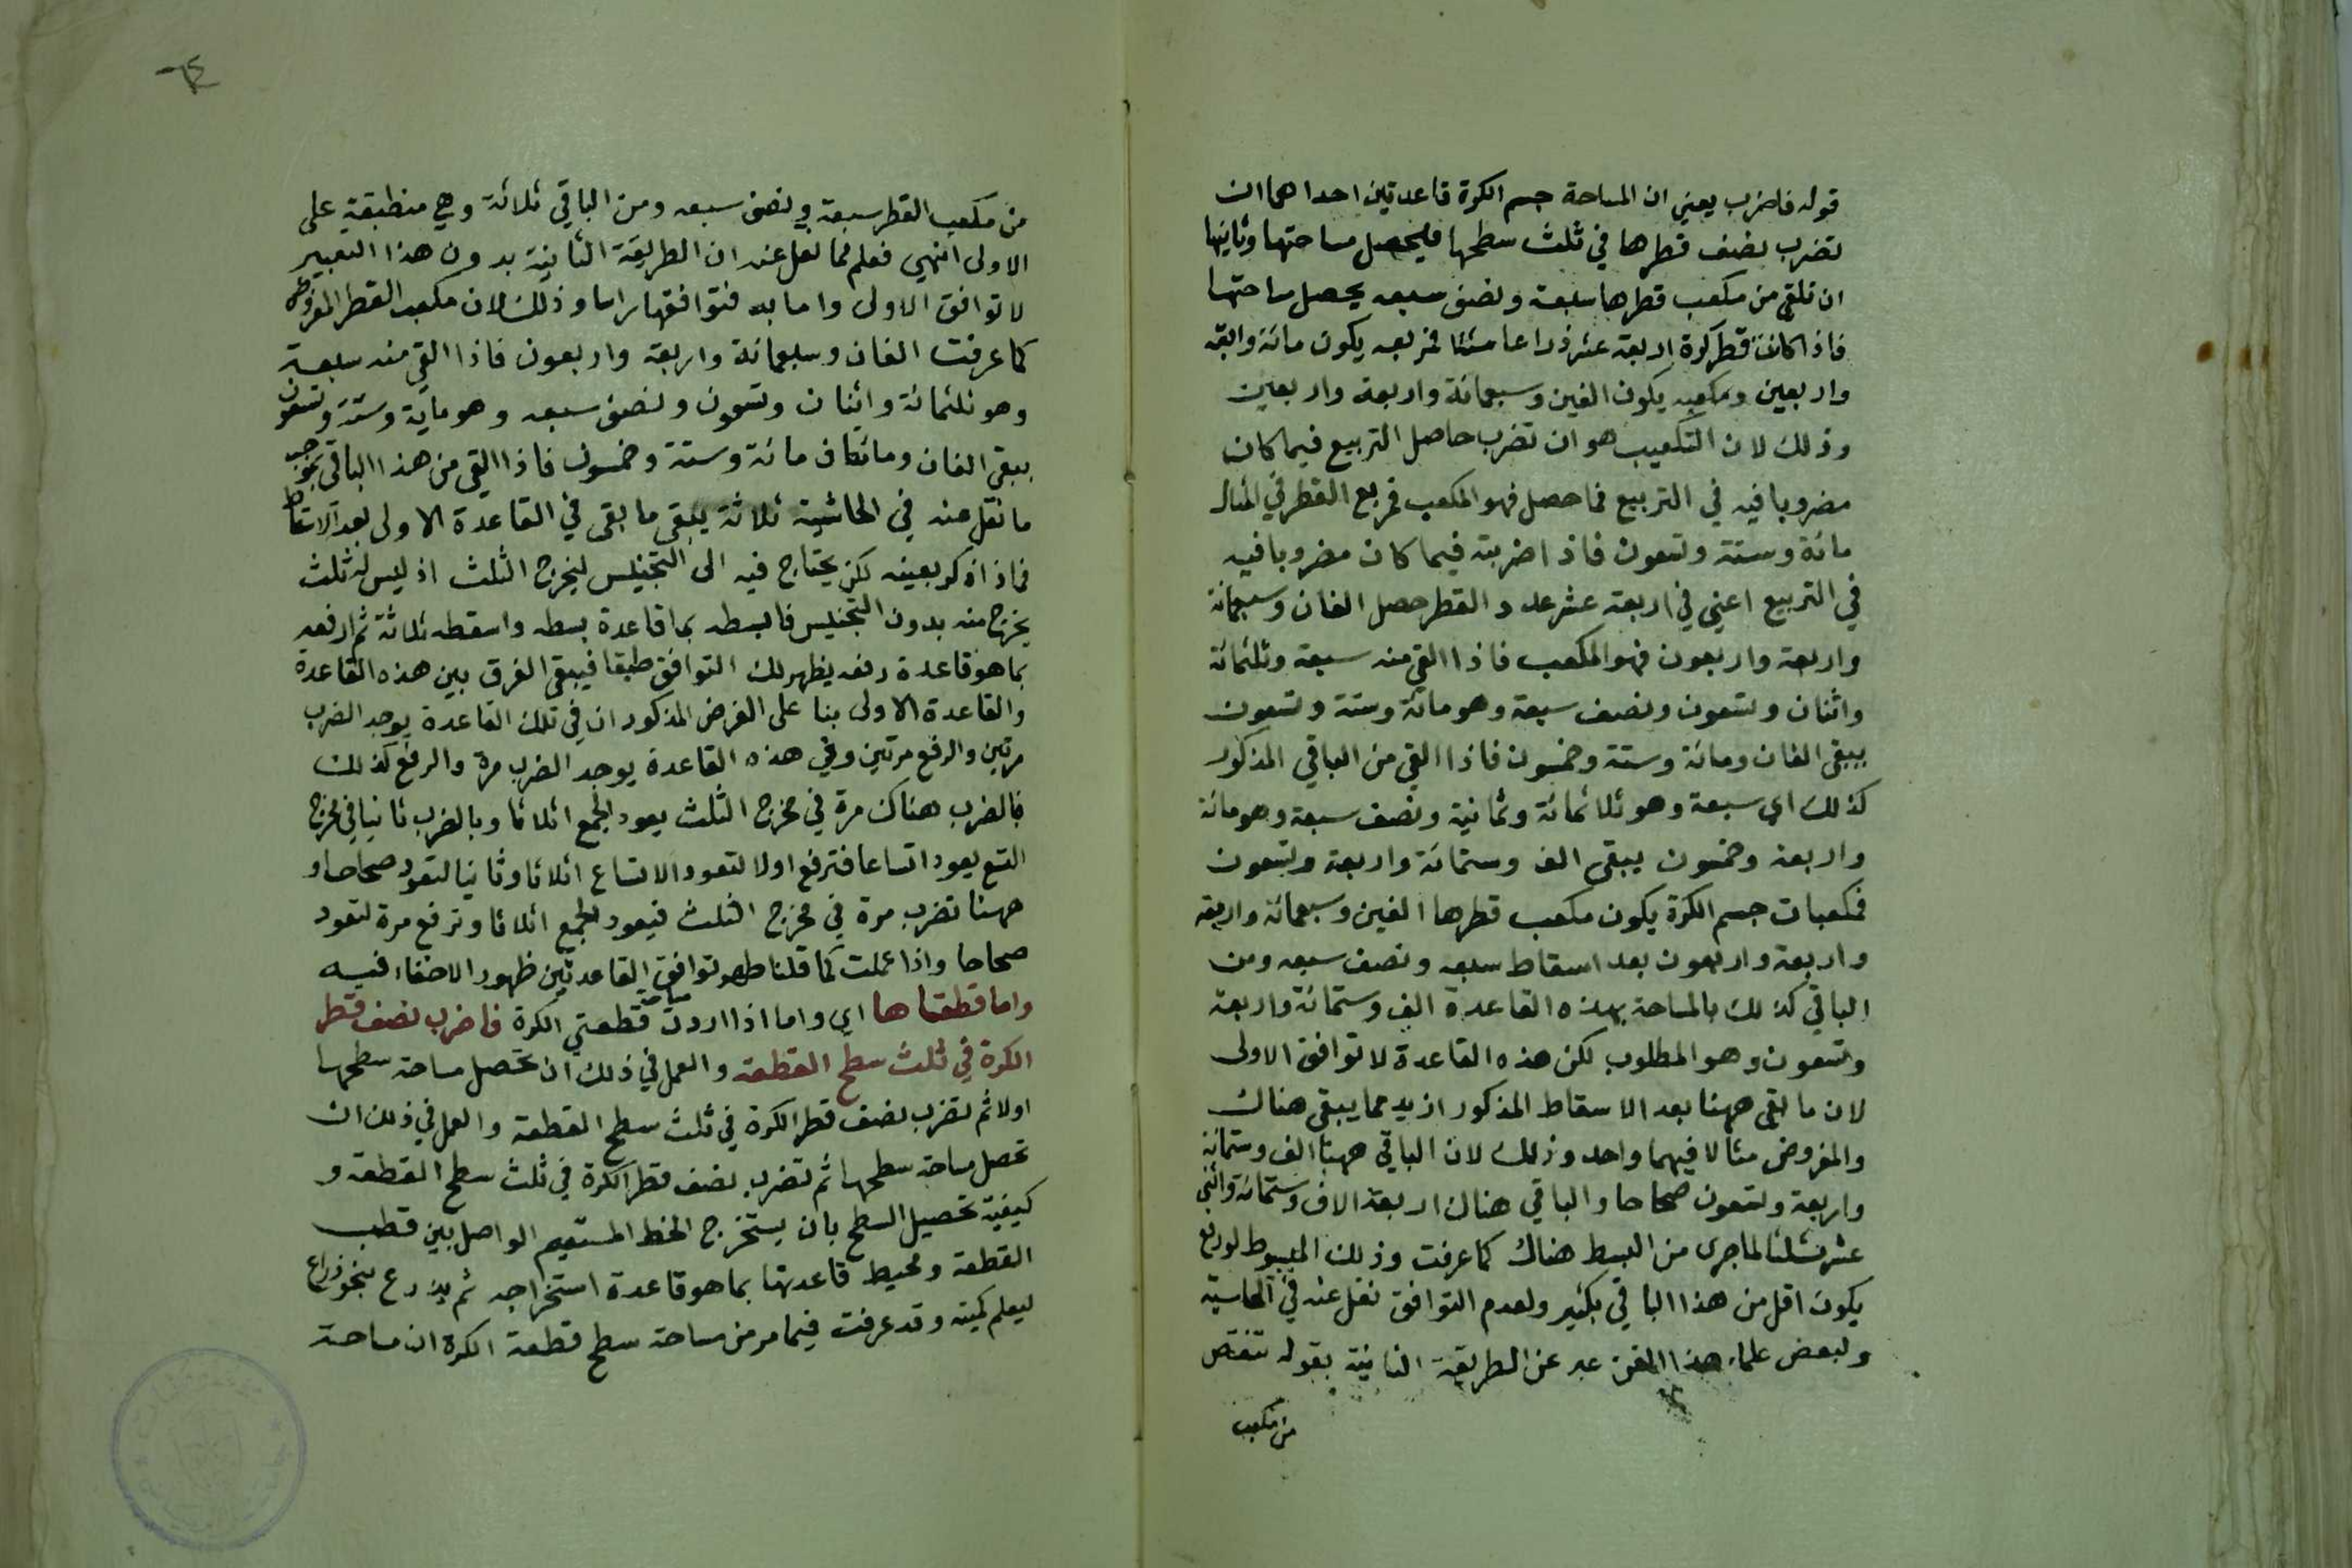 قوله فاضرب يعني ان المساحة جسم الكرة قاعدتين احداهما ان
تضرب نصف قطرها في ثلث سطحها فليحصل مساحتها وثانيها
ان تلقي من مكعب قطرها سبعة ونصف سبعه يحصل مساحتها
فاذا كانت قطر كرة اربعة عشر ذراعا مثلا فمربعه يكون مائة وستة
واربعين ومكعبه يكون الفين وسبعمائة واربعة واربعين
وذلك لان التكعيب هو ان تضرب حاصل التربيع فيما كان
مضروبا فيه في التربيع فما حصل فهو المكعب فمربع القطر في المثال
مائة وستة وتسعون فاذا ضربته فيما كان مضروبا فيه
في التربيع اعني في اربعة عشر عدد القطر حصل الفان وسبعمائة
واربعة واربعون فهو المكعب فاذا القي منه سبعة وثلثمائة
واثنان وتسعون ونصف سبعة وهو مائة وستة وتسعون
يبقى الفان ومائة وستة وخمسون فاذا القي من الباقي المذكور
كذلك اي سبعة وهو ثلاثمائة وثمانية ونصف سبعة وهو مائة
واربعة وخمسون يبقى الف وستمائة واربعة وتسعون
فمكعبات جسم الكرة يكون مكعب قطرها الفين وسبعمائة واربعة
واربعة واربعون بعد اسقاط سبعه ونصف سبعه ومن
الباقي كذلك بالمساحة بهذه القاعدة الف وستمائة واربعة
وتسعون وهو المطلوب لكن هذه القاعدة لا توافق الاولى
لان ما بقي ههنا بعد الاسقاط المذكور ازيد مما يبقى هناك
والمفروض مثالا فيهما واحد وذلك لان الباقي ههنا الف وستمائة
واربعة وتسعون صحاحا والباقي هناك اربعة الاف وستمائة واثني
عشر مثلثا لما جرى من البسط هناك كما عرفت وذلك المبسوط لو رفع
يكون اقل من هذا الباقي بكثير ولعدم التوافق نقل عنه في الحاشية
ولبعض علماء هذا الفن عبر عن الطريقة الثانية بقوله تنقص
من مكعب
من مكعب القطر سبعة ونصف سبعه ومن الباقي ثلاثة وهي منطبقة على
الاولى انتهى فعلم مما نقل عنه ان الطريقة الثانية بدون هذا التعبير
لا توافق الاولى واما به فتوافقها راسا وذلك لان مكعب القطر المفروض
كما عرفت الفان وسبعمائة واربعة واربعون فاذا القي منه سبعة
وهو ثلثمائة واثنان وتسعون ونصف سبعه وهو مائة وستة وتسعون
يبقى الفان ومائتان مائة وستة وخمسون فاذا القي من هذا الباقي بموجب
ما نقل عنه في الحاشية ثلاثة يبقى ما بقى في القاعدة الاولى بعد الاسقاط
فماذا ذكر بعينه لكن يحتاج فيه الى التجنيس ليخرج الثلث اذ ليس له ثلث
يخرج منه بدون التجنيس فابسطه بما قاعدة بسطه واسقطه ثلاثة ثم ارفعه
بما هو قاعدة رفعه يظهر لك التوافق طبقا فيبقى الفرق بين هذه القاعدة
والقاعدة الاولى بنا على الفرض المذكور ان في تلك القاعدة يوجد الضرب
مرتين والرفع مرتين وفي هذه القاعدة يوجد الضرب مرة والرفع كذلك
فالضرب هناك مرة في مخرج الثلث يعود الجمع اثلاثا وبالضرب ثانيا في مخرج
التسع يعود اتساعا فترفع اولا لتعود الاتساع اثلاثا وثانيا لتعود صحاحا و
ههنا تضرب مرة في مخرج الثلث فيعود الجمع اثلاثا وترفع مرة لتعود
صحاحا واذا عملت كما قلنا ظهر توافق القاعدتين ظهور الاخفاء فيه
واما قطعتاها اي واما اذا اردت مساحة قطعتي الكرة فاضرب نصف قطر
الكرة في ثلث سطح القطعة والعمل في ذلك ان تحصل مساحة سطحها
اولا ثم تضرب نصف قطر الكرة في ثلث سطح القطعة والعمل في ذلك ان
تحصل مساحة سطحها ثم تضرب نصف قطر الكرة في ثلث سطح القطعة و
كيفية تحصيل السطح بان يستخرج الخط المستقيم الواصل بين قطب
القطعة ومحيط قاعدتها بما هو قاعدة استخراجه ثم يذرع بنحو ذراع
ليعلم كميته وقد عرفت فيما مر من مساحة سطح قطعة الكرة ان مساحة